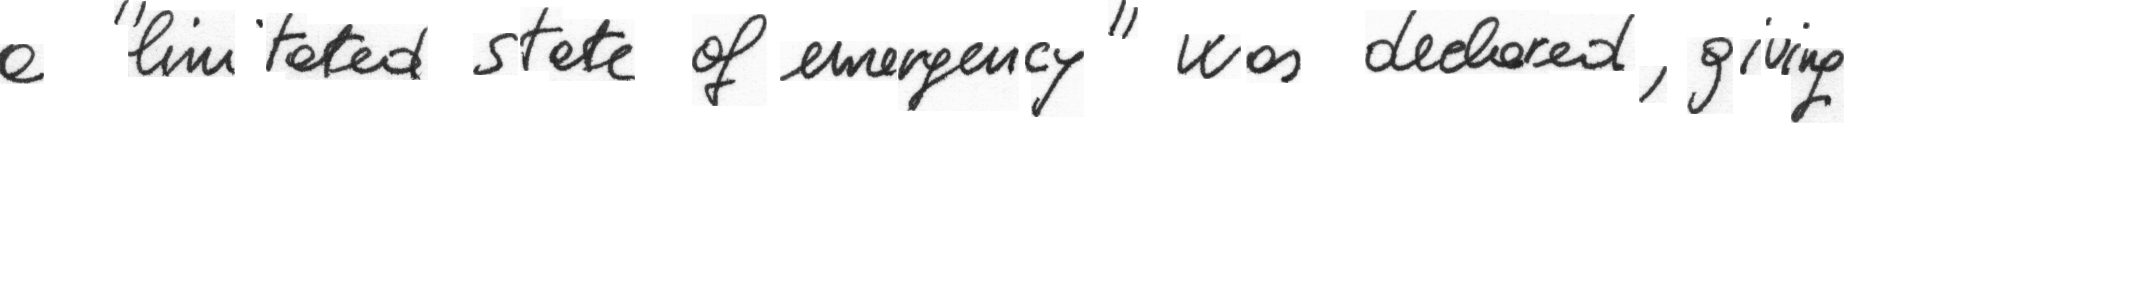 a "limitated state of emergency" was declared, giving